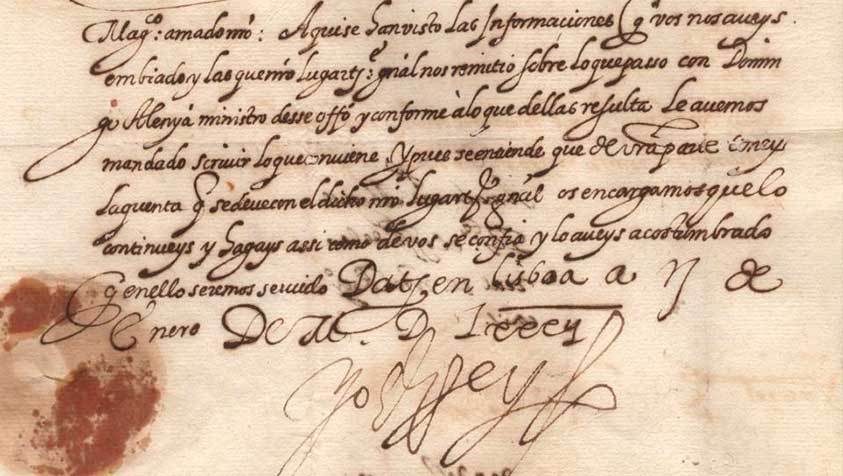 Magco: amado nro: Aqui se han visto las Informaciones q̃ vos nos aueys
embiado y las que nro lugartte: gñal nos remitio sobre lo que passo con Domin
go Alenyá ministro desse offo y conforme à lo que dellas resulta le auemos
mandado scriuir lo que conuiene, y pues se entiende que de vr̃a parte teneys
la quenta q̃ se deue con el dicho nro lugartte gñal os encargamos que lo
continueys y hagays assi como de vos se confia y lo aueys acostumbrado
q̃ en ello seremos seruido Datt, en lisboa a II de
Enero De M. D Lxxxij
Yo el Rey